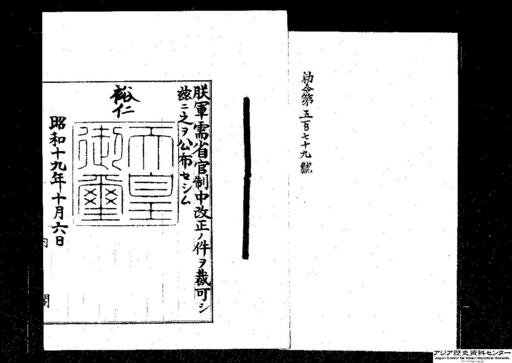 勅令第五百七十九號
朕軍需省官制中改正ノ件ヲ裁可シ
玆ニ之ヲ公布セシム
裕仁
天皇
御璽
昭和十九年十月六日
内
閣
アジア歴史資料センター
Japan Center for Asian Historical Records